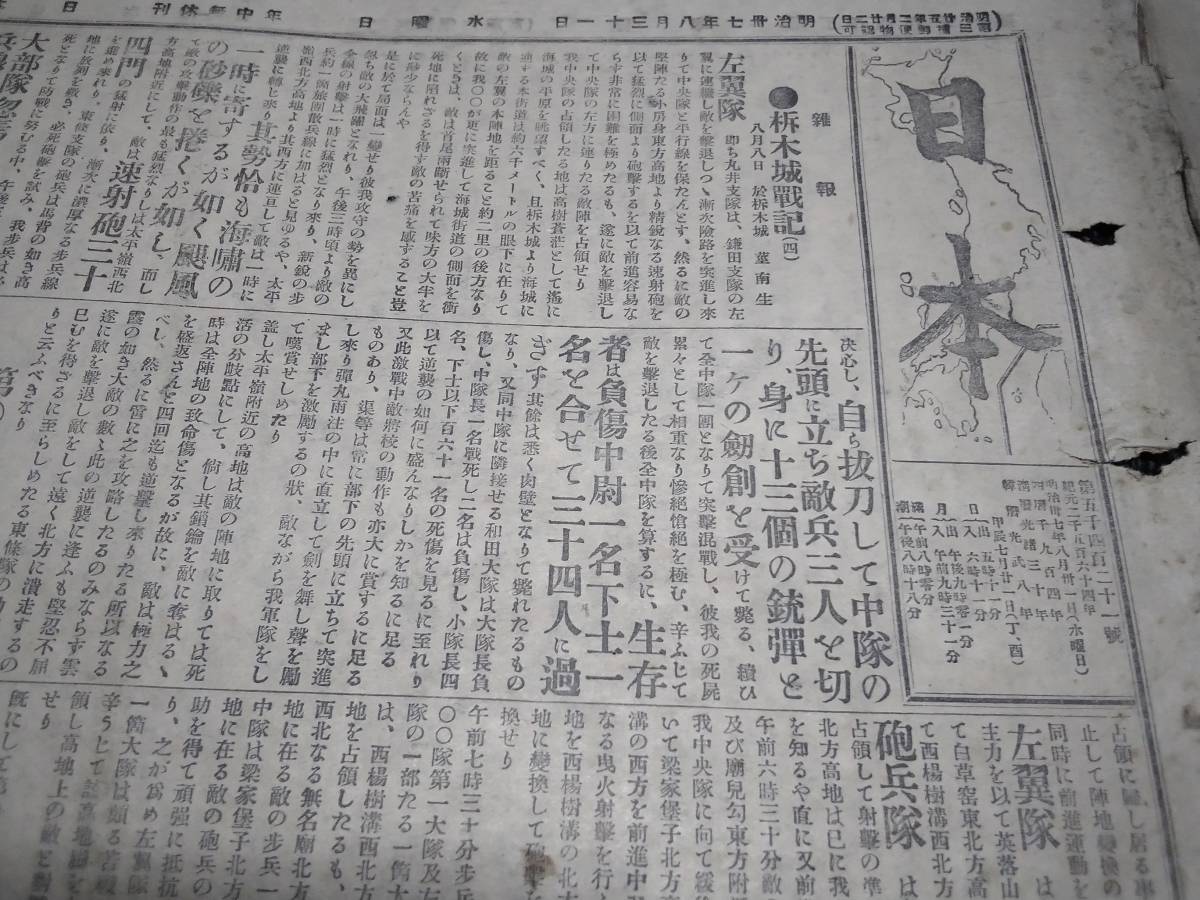 明治卅七年八月三十一日
水曜日
年中無休刊
日本
第五千四百二十一號
紀元二千五百六十四年
明治卅七年八月卅一日(水曜日)
西暦千九百四年
清暦光緒三十年
韓暦光武八年
甲辰七月廿一日(丁、酉)
雜報
●柝木城戰記(四)
八月八日 於柝木城 菫南生
左翼隊 即ち丸井支隊は、鎌田支隊の左
翼に連繼し敵を擊退しつゝ漸次險路を突進し來
りて中央隊と平行線を保たんとす、然るに敵の
堅陣たる小房身東方高地より精銳なる速射砲を
以て猛烈に側面より砲擊するを以て前進容易な
らず非常に困難を極めたるも、遂に敵を擊退し
て中央隊の左方に連りたる敵陣を占領せり
我中央隊の占領したる地は高樹蒼茫として遙に
海城の平原を眺望すべく、且柝木城より海城に
通する本街道は約六千メートルの眼下に在りて
敵の左翼の本陣地を距ること約二里の後方なり
故に我〇〇が更に突進して海城街道の側面を衝
くときは、敵は首尾兩斷せられて味方の大半を
死地に陷れざるを得ず敵の苦痛を感ずること豈
に尠少ならんや
是に於て局面は一變せり彼我攻守の勢を異にし
忽ち敵の大飛躍となれり、午後三時頃より敵の
全線の射擊は一時に猛烈となり來り、新銳の步
兵約一個旅團散兵線に加はると見ゆるや、太平
嶺西北方高地より其西方に連亘して敵は一時に
逆襲に轉じ來り
一時に寄する其勢恰も海嘯の
の砂礫を捲くが如く颶風
て敵の攻擊動作の最も猛烈なりしは太平嶺西北
方高地附近にして、敵は速射砲三十
四門の猛射に依り、漸次に濃厚なる步兵線
を進め來れり、東條支隊の砲兵は馬背の如き高
地に放列を敷き、必死砲擊を試み、我步兵は
死となりて防戰に努むる中、午後
決心し、自ら拔刀して中隊の
先頭に立ち敵兵三人を切
り、身に十三個の銃彈と
一ケの劍創を受けて斃る、續ひ
て全中隊一團となりて突擊混戰し、彼我の死屍
累々として相重なり慘絕愴絕を極む、辛ふじて
敵を擊退したる後全中隊を算するに、生存
者は負傷中尉一名下士一
名を合せて三十四人に過
ぎず其餘は悉く肉壁となりて斃れたるもの
なり、又同中隊に隣接せる和田大隊は大隊長負
傷し、中隊長一名戰死し二名は負傷し、小隊長四
名、下士以下百六十一名の死傷を見るに至れり
以て逆襲の如何に盛んなりしかを知るに足る
又此激戰中敵將校の動作も亦大に賞するに足る
ものあり、渠等は常に部下の先頭に立ちて突進
し來り彈丸雨注の中に直立して劍を舞し聲を勵
まし部下を激勵するの狀、敵ながら我軍隊をし
て嘆賞せしめたり
蓋し太平嶺附近の高地は敵の陣地に取りては死
活の分歧點にして、倘し其鎖鑰を敵に奪はるゝ
時は全陣地の致命傷となるが故に、敵は極力之
を盛返さんと四回迄も逆擊し來りたる所以なる
べし、然るに啻に之を攻略したるのみならず雲
霞の如き大敵の數々此の逆襲に逢ふも堅忍不屈
遂に敵を擊退し敵をして遠く北方に潰走するの
已むを得ざるに至らしめたる東條隊の
りと云ふべきなり
占領に歸し居る
止して陣地變換の
同時に前進運動を
左翼隊 は
主力を以て英落山
て白草窑東北方高
て西楊樹溝西北方
砲兵隊 は
占領して射擊の準
北方高地は已に我
を知るや直に又前
午前六時三十分敵の
及び廟兒勾東方附
我中央隊に向て緩
いて梁家堡子北方高
溝の西方を前進中
なる曳火射擊を行
地を西楊樹溝の北方
地に變換して砲
換せり
午前七時三十分步兵
〇〇隊第一大隊及左
隊の一部たる一箇大
は、西楊樹溝西北方
地を占領したるも、
西北なる無名廟北方
地に在る敵の步兵一
中隊は梁家堡子北方
地に在る敵の砲兵の
助を得て頑強に抵抗
り、之が爲め左翼隊
一箇大隊は頗る苦戰
辛うじて該高地を占
領し高地上の敵と對
せり
既にして第